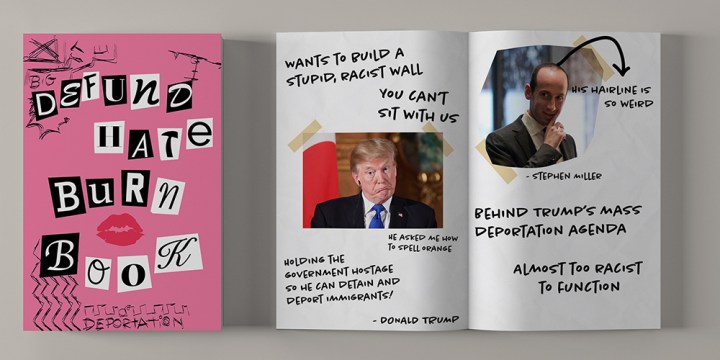 BIG
DEFUND
HATE
BURN
BOOK
DEPORTATION
WANTS TO BUILD A
STUPID, RACIST WALL
YOU CAN'T
SIT WITH US
HE ASKED ME HOW
TO SPELL ORANGE
HOLDING THE
GOVERNMENT HOSTAGE
SO HE CAN DETAIN AND
DEPORT IMMIGRANTS!
- DONALD TRUMP
HIS HAIRLINE IS
SO WEIRD
- STEPHEN MILLER
BEHIND TRUMP'S MASS
DEPORTATION AGENDA
ALMOST TOO RACIST
TO FUNCTION